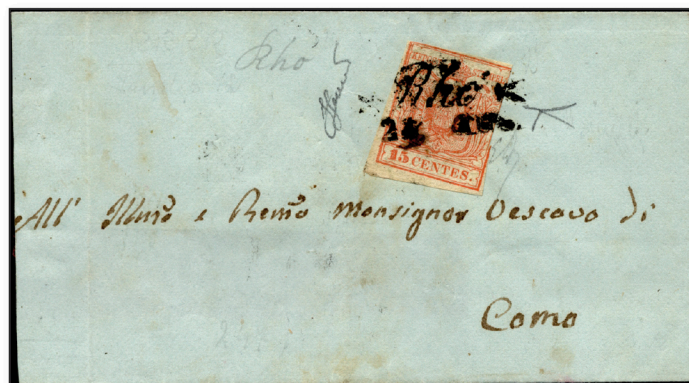 Rhò
Rhò
15 CENTES.
All' Illmo e Remo Monsignor Vescovo di
Como